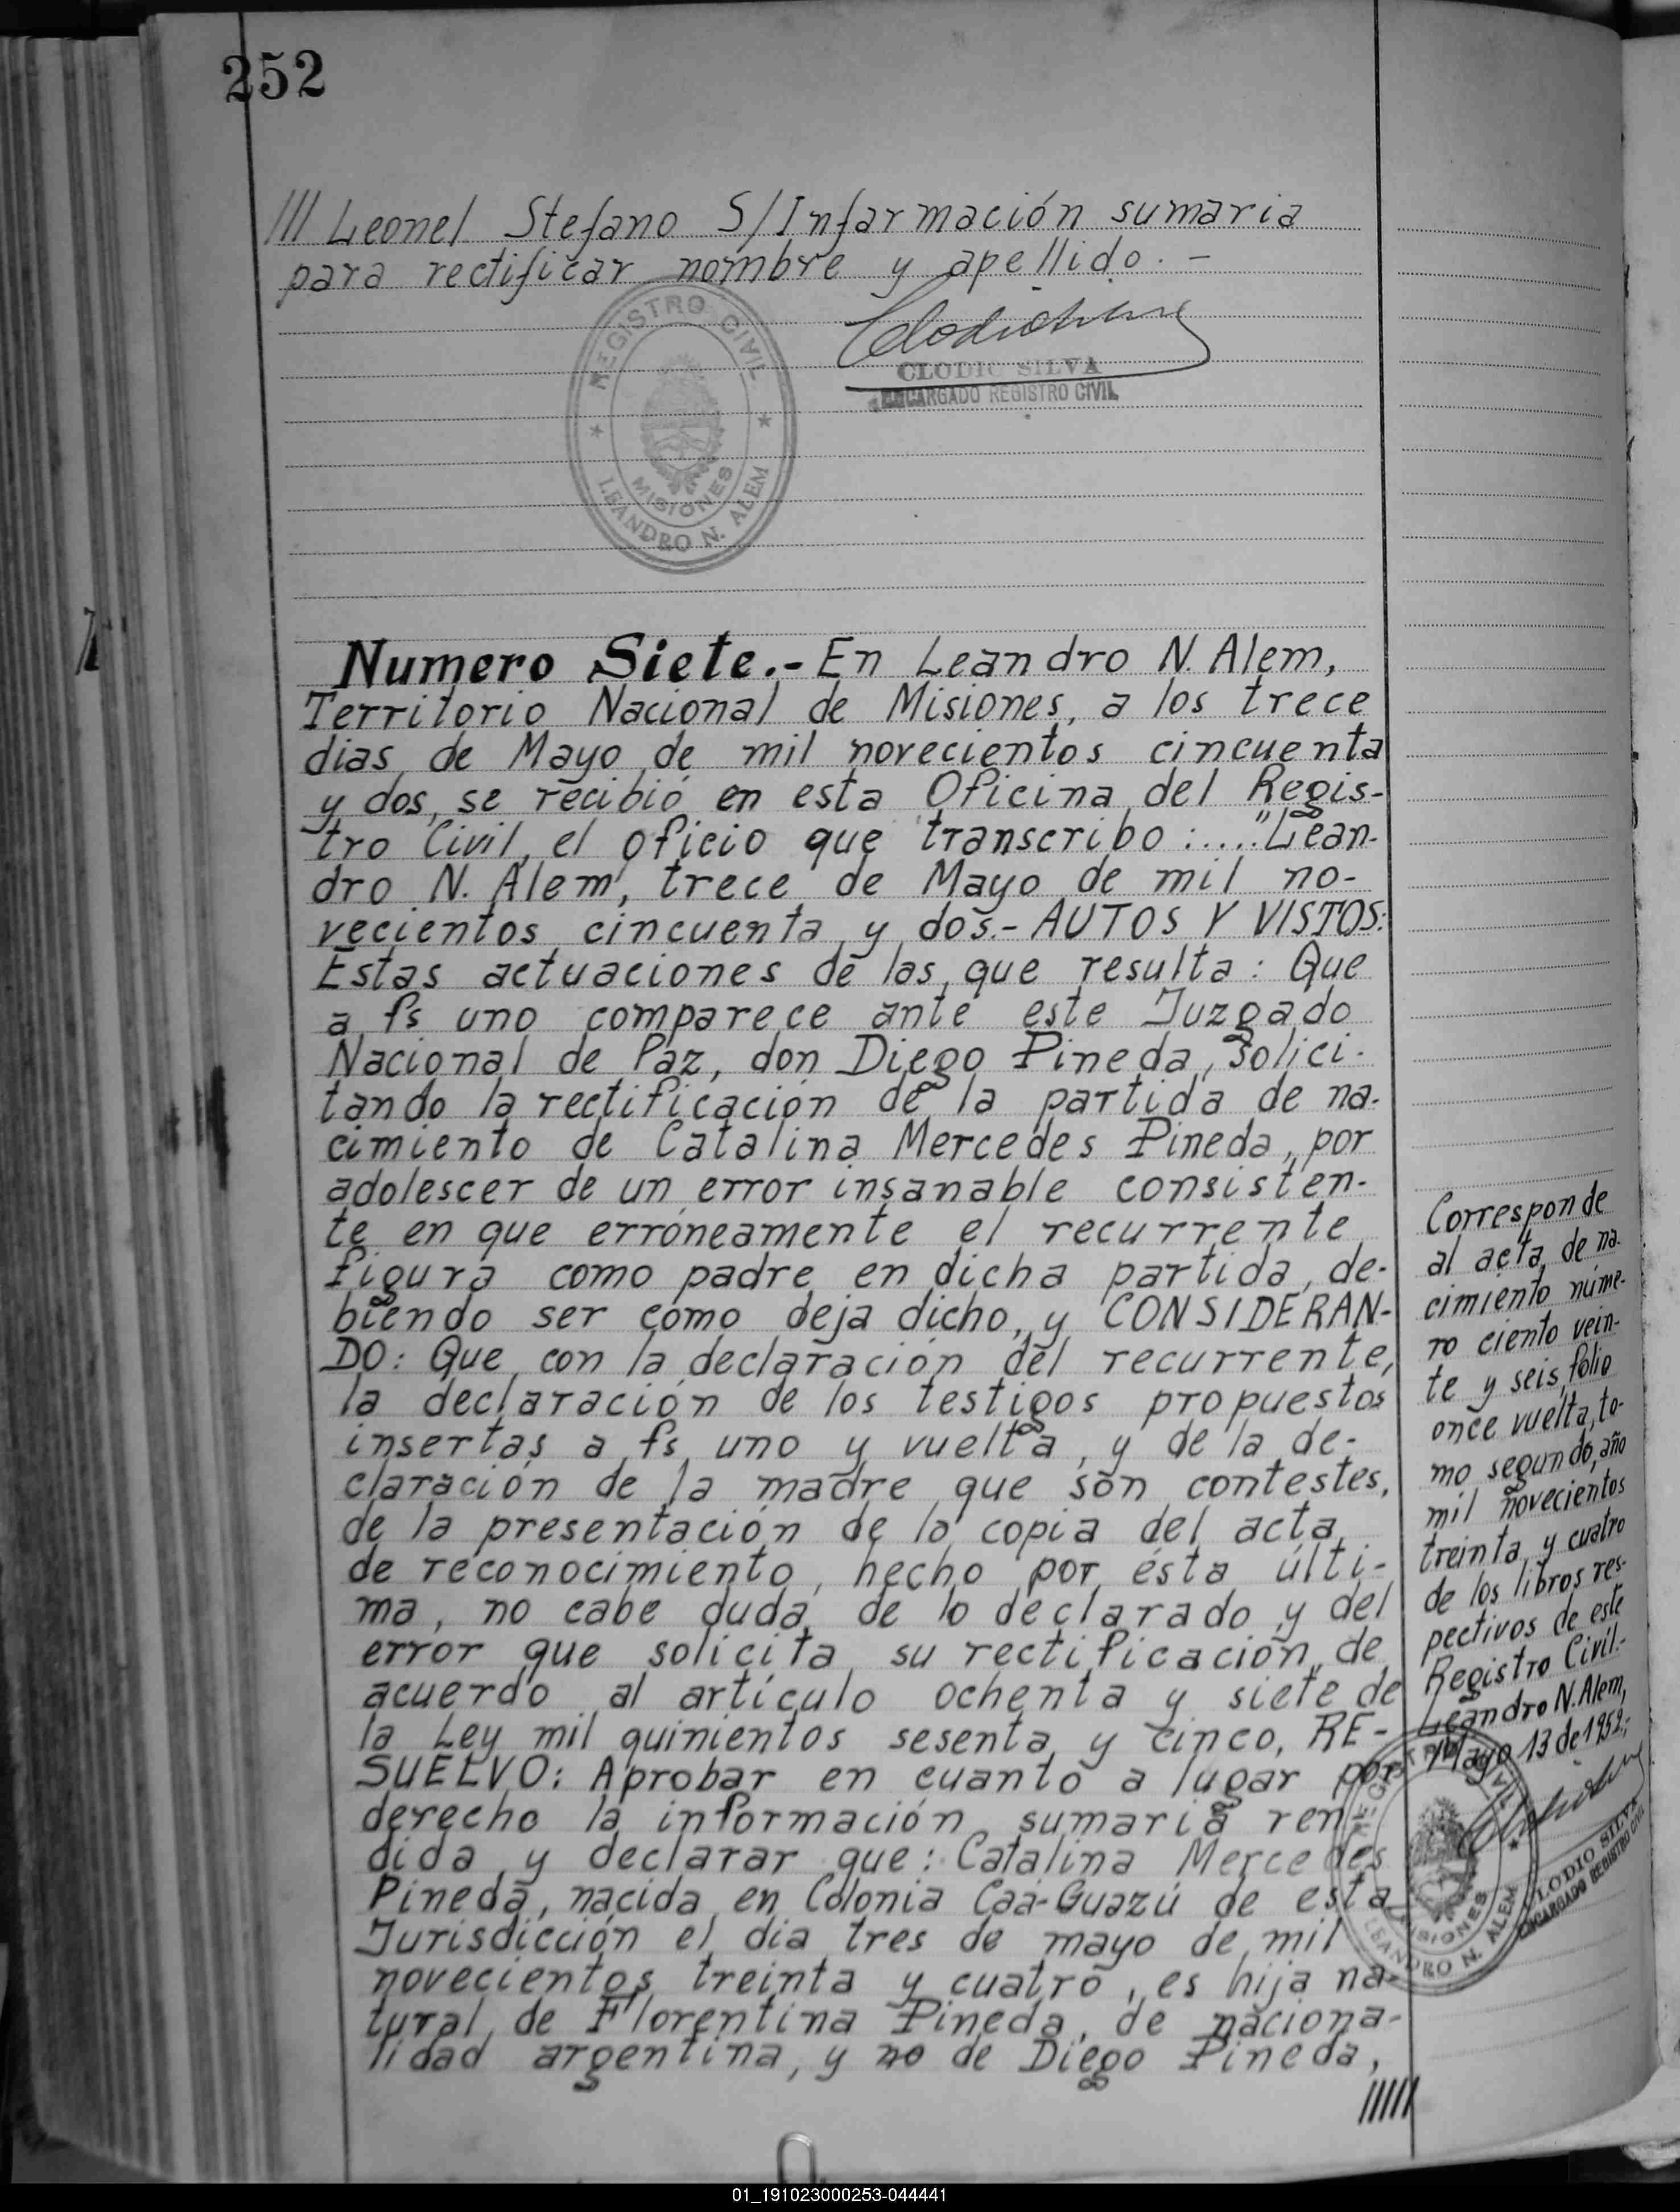 252
/// Leonel Stefano S/Infarmación sumaria
para rectificar nombre y apellido. -
REGISTRO CIVIL
MISIONES
LEANDRO N. ALEM
CLODIO SILVA
ENCARGADO REGISTRO CIVIL
Numero Siete.- En Leandro N. Alem,
Territorio Nacional de Misiones, a los trece
dias de Mayo de mil novecientos cincuenta
y dos, se recibió en esta Oficina del Regis-
tro Civil, el oficio que transcribo :....."Lean-
dro N. Alem, trece de Mayo de mil no-
vecientos cincuenta y dos.- AUTOS Y VISTOS:
Estas actuaciones de las que resulta : Que
a fs uno comparece ante este Juzgado
Nacional de Paz, don Diego Pineda, solici-
tando la rectificación de la partida de na-
cimiento de Catalina Mercedes Pineda, por
adolescer de un error insanable consisten-
te en que erróneamente el recurrente
figura como padre en dicha partida, de-
biendo ser como deja dicho, y CONSIDERAN-
DO: Que con la declaración del recurrente,
la declaración de los testigos propuestos
insertas a fs uno y vuelta, y de la de-
claración de la madre que son contestes,
de la presentación de la copia del acta
de reconocimiento, hecho por ésta últi-
ma, no cabe duda de lo declarado y del
error que solicita su rectificación, de
acuerdo al artículo ochenta y siete de
la Ley mil quinientos sesenta y cinco, RE-
SUELVO: Aprobar en cuanto a lugar por
derecho la información sumaria ren
dida y declarar que: Catalina Mercedes
Pineda, nacida en Colonia Caá-Guazú de esta
Jurisdicción el día tres de mayo de mil
novecientos treinta y cuatro, es hija na-
tural de Florentina Pineda, de naciona-
lidad argentina, y no de Diego Pineda,
/////
Corresponde
al acta de na-
cimiento núme-
ro ciento vein-
te y seis, folio
once vuelta, to-
mo segundo, año
mil novecientos
treinta y cuatro
de los libros res-
pectivos de este
Registro Civil.-
Leandro N. Alem,
Mayo 13 de 1952.-
REGISTRO CIVIL
MISIONES
LEANDRO N. ALEM
CLODIO SILVA
ENCARGADO REGISTRO CIVIL
01_191023000253-044441